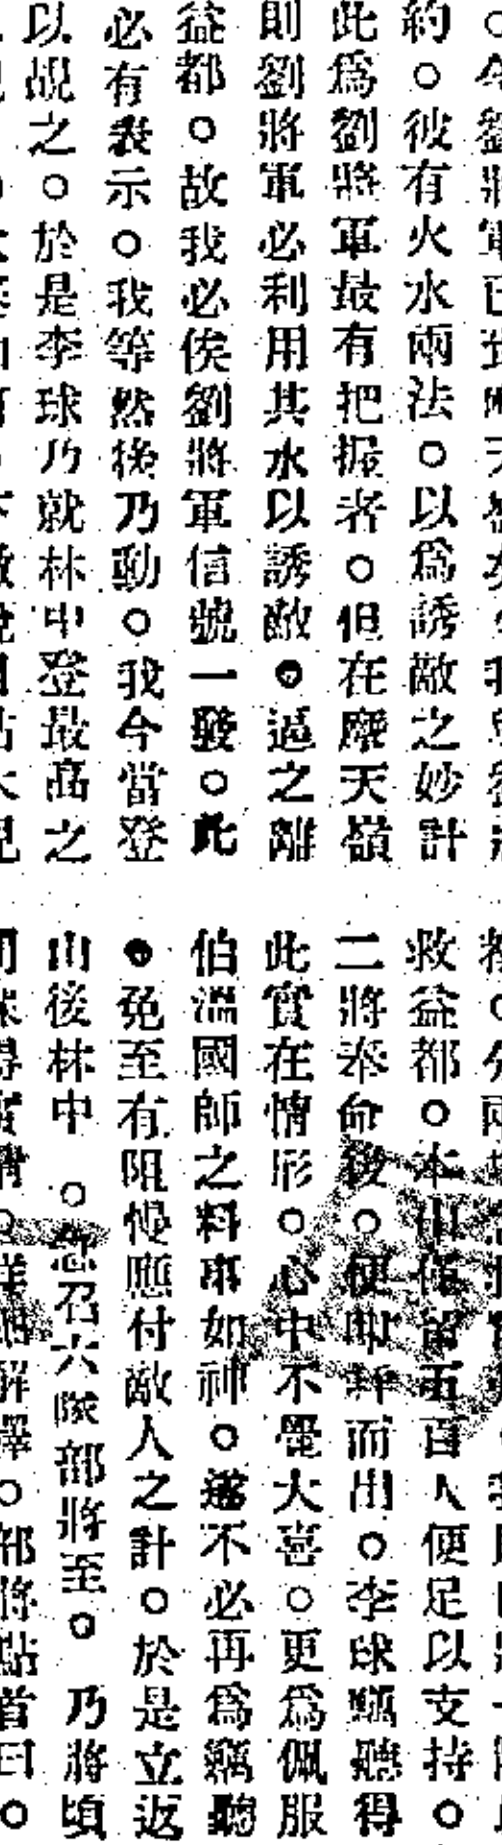 約○彼有火水兩法○以爲誘敵之妙計
此爲劉將軍最有把握者○但在摩天嶺
則劉將軍必利用其水以誘敵○逼之離
益都○故我必俟劉將軍信號一發○此
必有表示○我等然後乃動○我今當登
以覘之○於是李球乃就林中登最高之
救益都○本山僅留五百人便足以支持○
二將奉命後○便叩辭而出○李球竊聽得
此實在情形○心中不覺大喜○更爲佩服
伯溫國師之料事如神○遂不必再爲竊聽
○免至有阻慢應付敵人之計○於是立返
山後林中○忽召六隊部將至○乃將頃